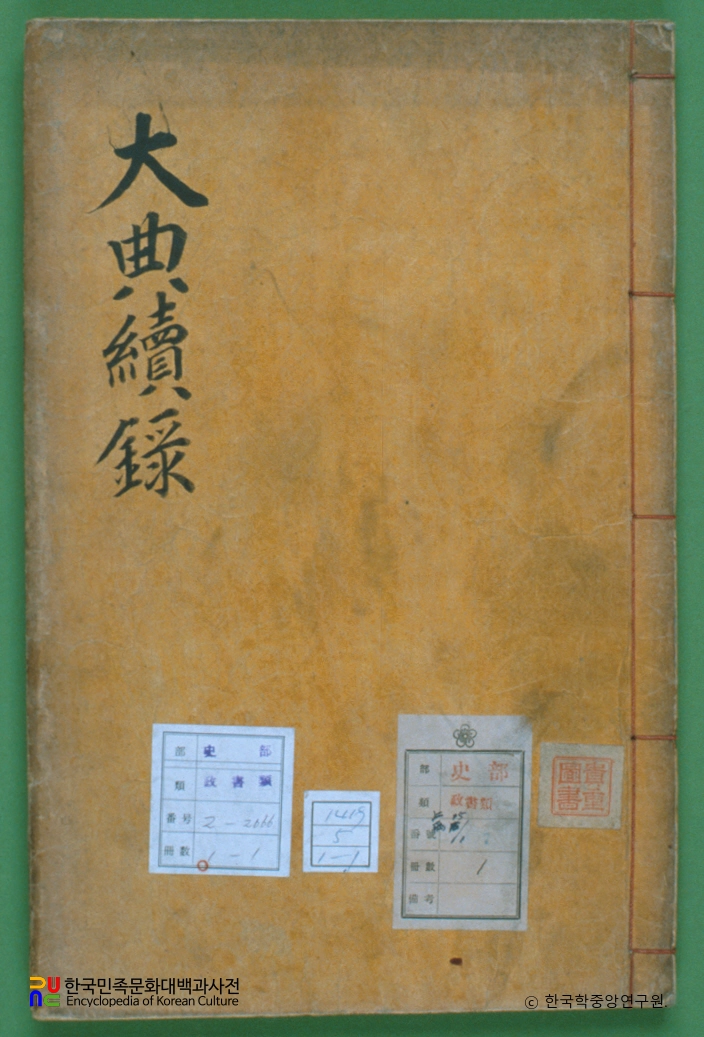 大典續錄
部 史 部
類 政書類
番号 2-2066
冊數 1-1
1419
5
1-1
部 史 部
類 政書類
番號
冊數 1
備考
貴重
圖書
한국민족문화대백과사전
Encyclopedia of Korean Culture
© 한국학중앙연구원.